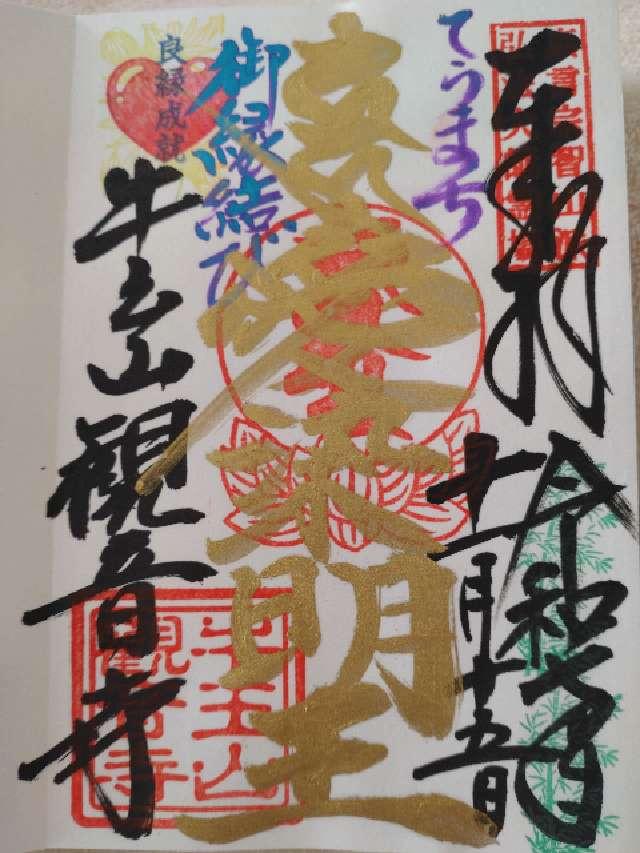 奉拝
令和七年
十一月十五日
てうまち
愛染明王
御縁結び
良縁成就
牛王山観音寺
牛王山
観音寺